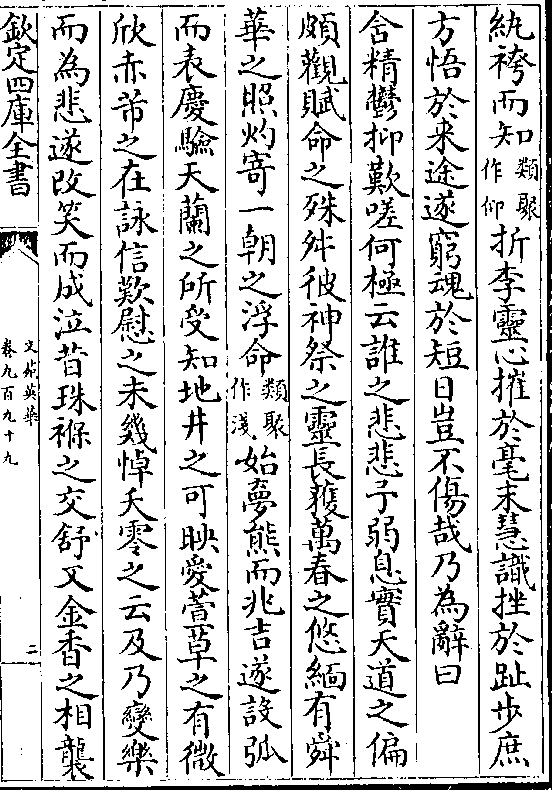 紈袴而知類聚作仰折李靈心摧於毫末慧識挫於趾步庶
方悟於来途遂窮魂於短日豈不傷哉乃為辭曰
含精鬱抑歎嗟何極云誰之悲悲予弱息實天道之偏
頗觀賦命之殊舛彼神祭之靈長獲萬春之悠緬有舜
華之照灼寄一朝之浮命類聚作淺始夢熊而兆吉遂設弧
而表慶驗天蘭之所受知地井之可映愛萱草之有微
欣赤芾之在詠信歎慰之未幾悼夭零之云及乃變樂
而為悲遂改笑而成泣昔珠褓之交舒又金香之相襲
欽定四庫全書
文苑英華
卷九百九十九
二